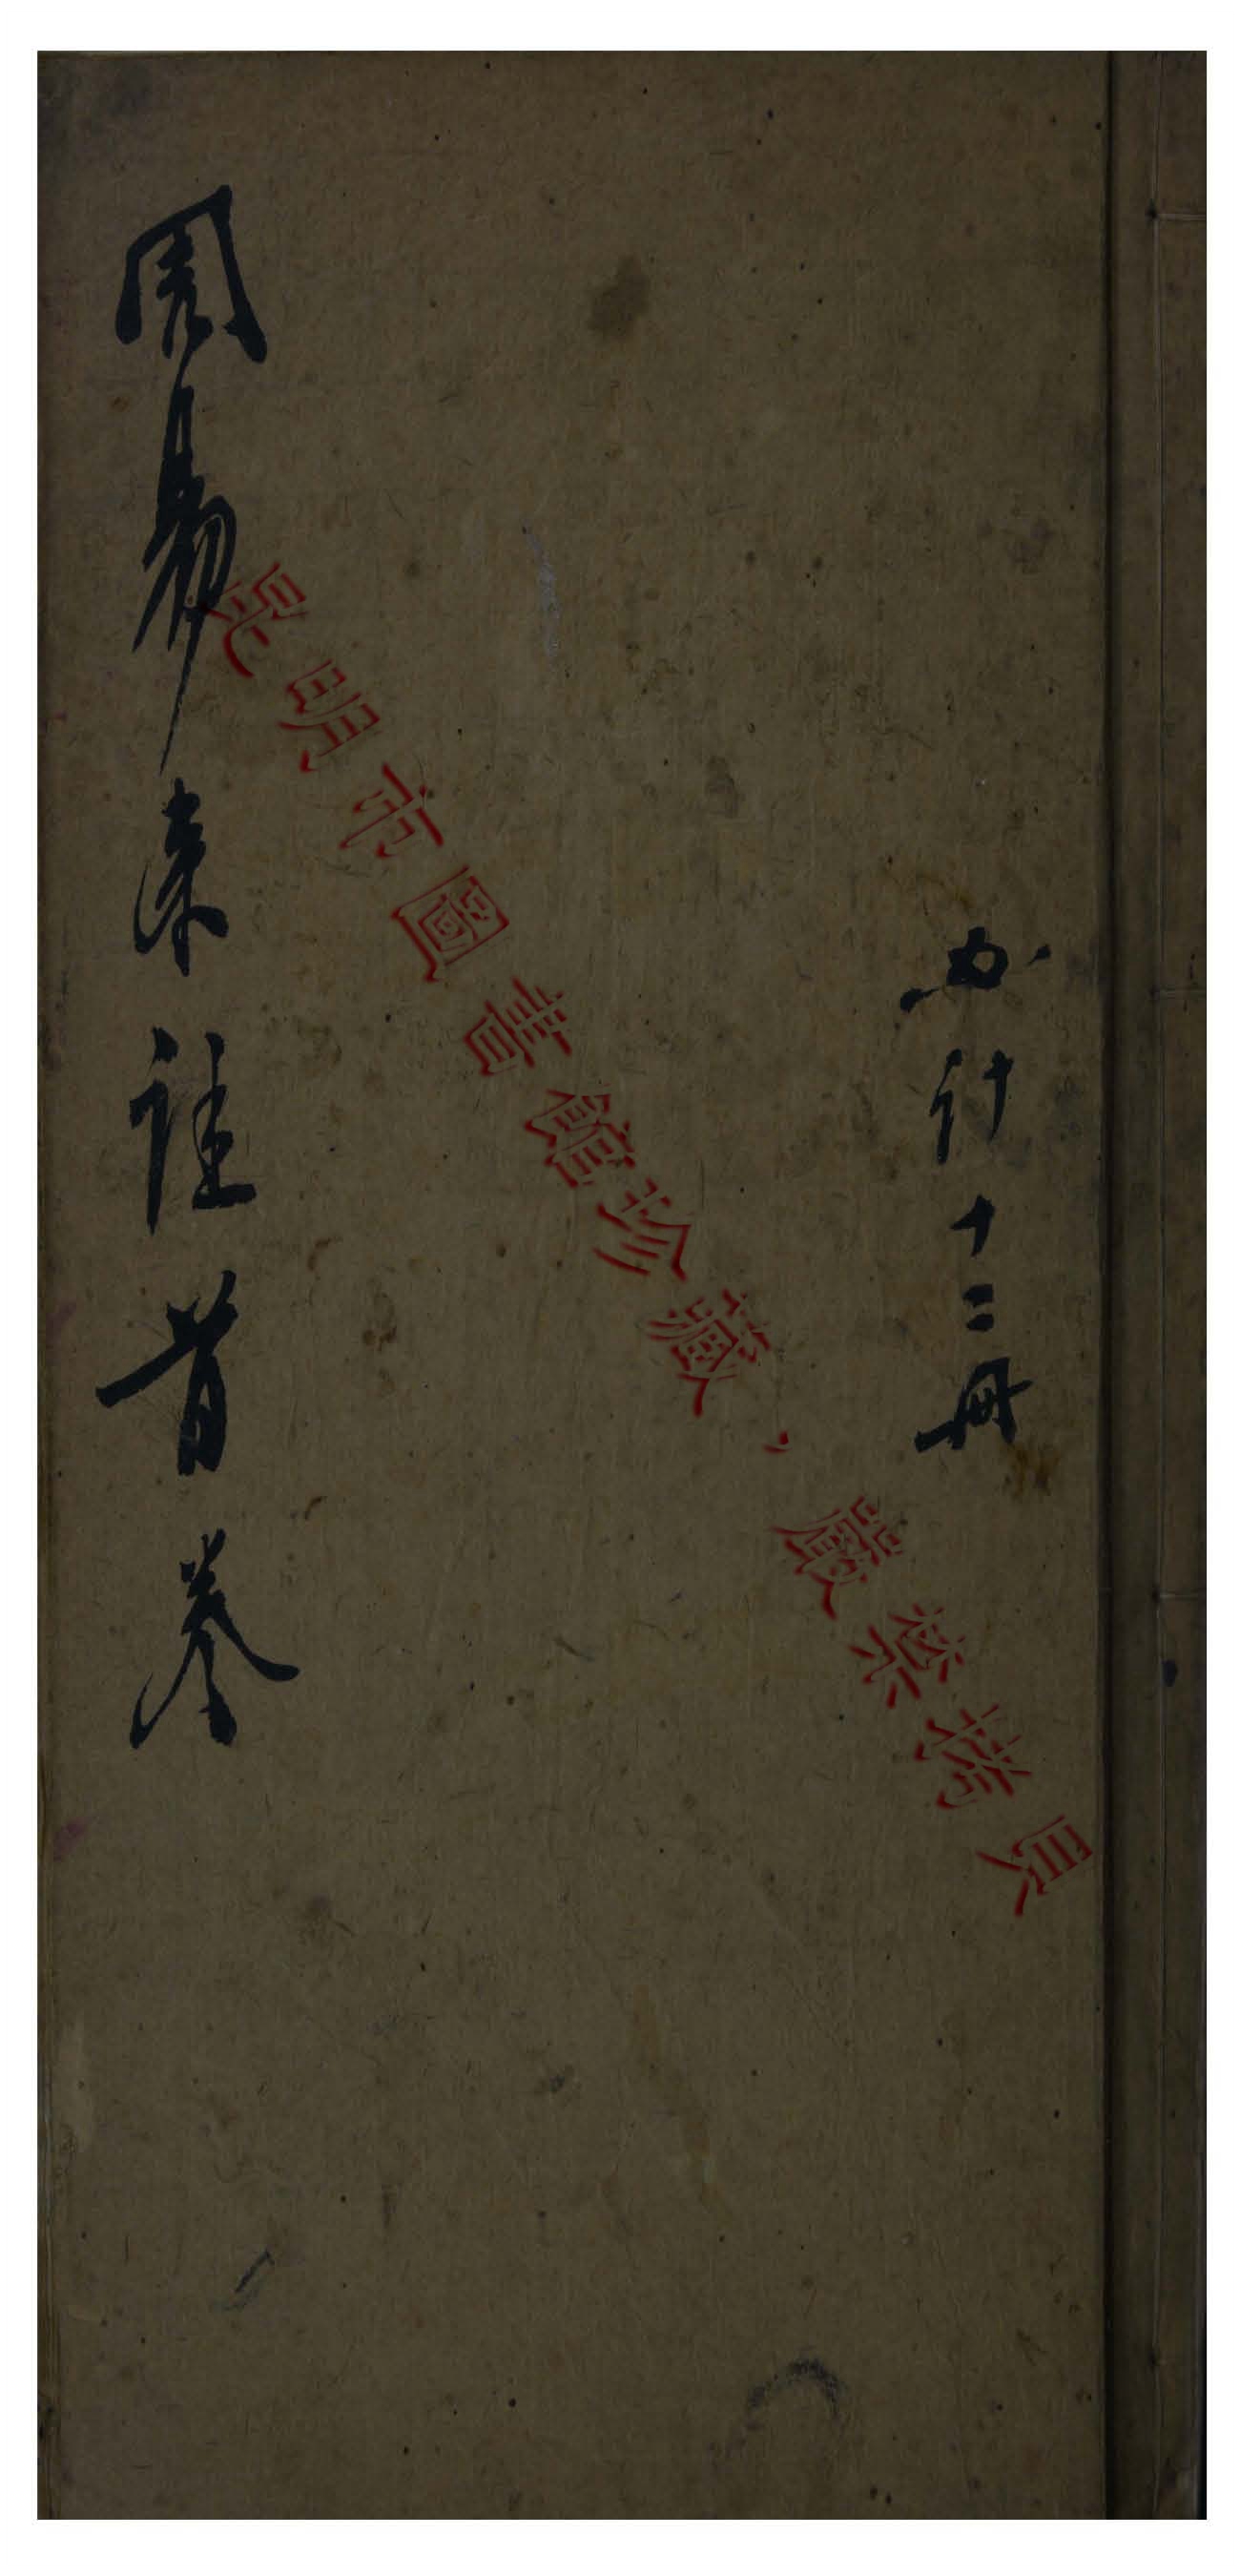 共計十二冊
周易來註首卷
昆明市圖書館珍藏，嚴禁拷貝